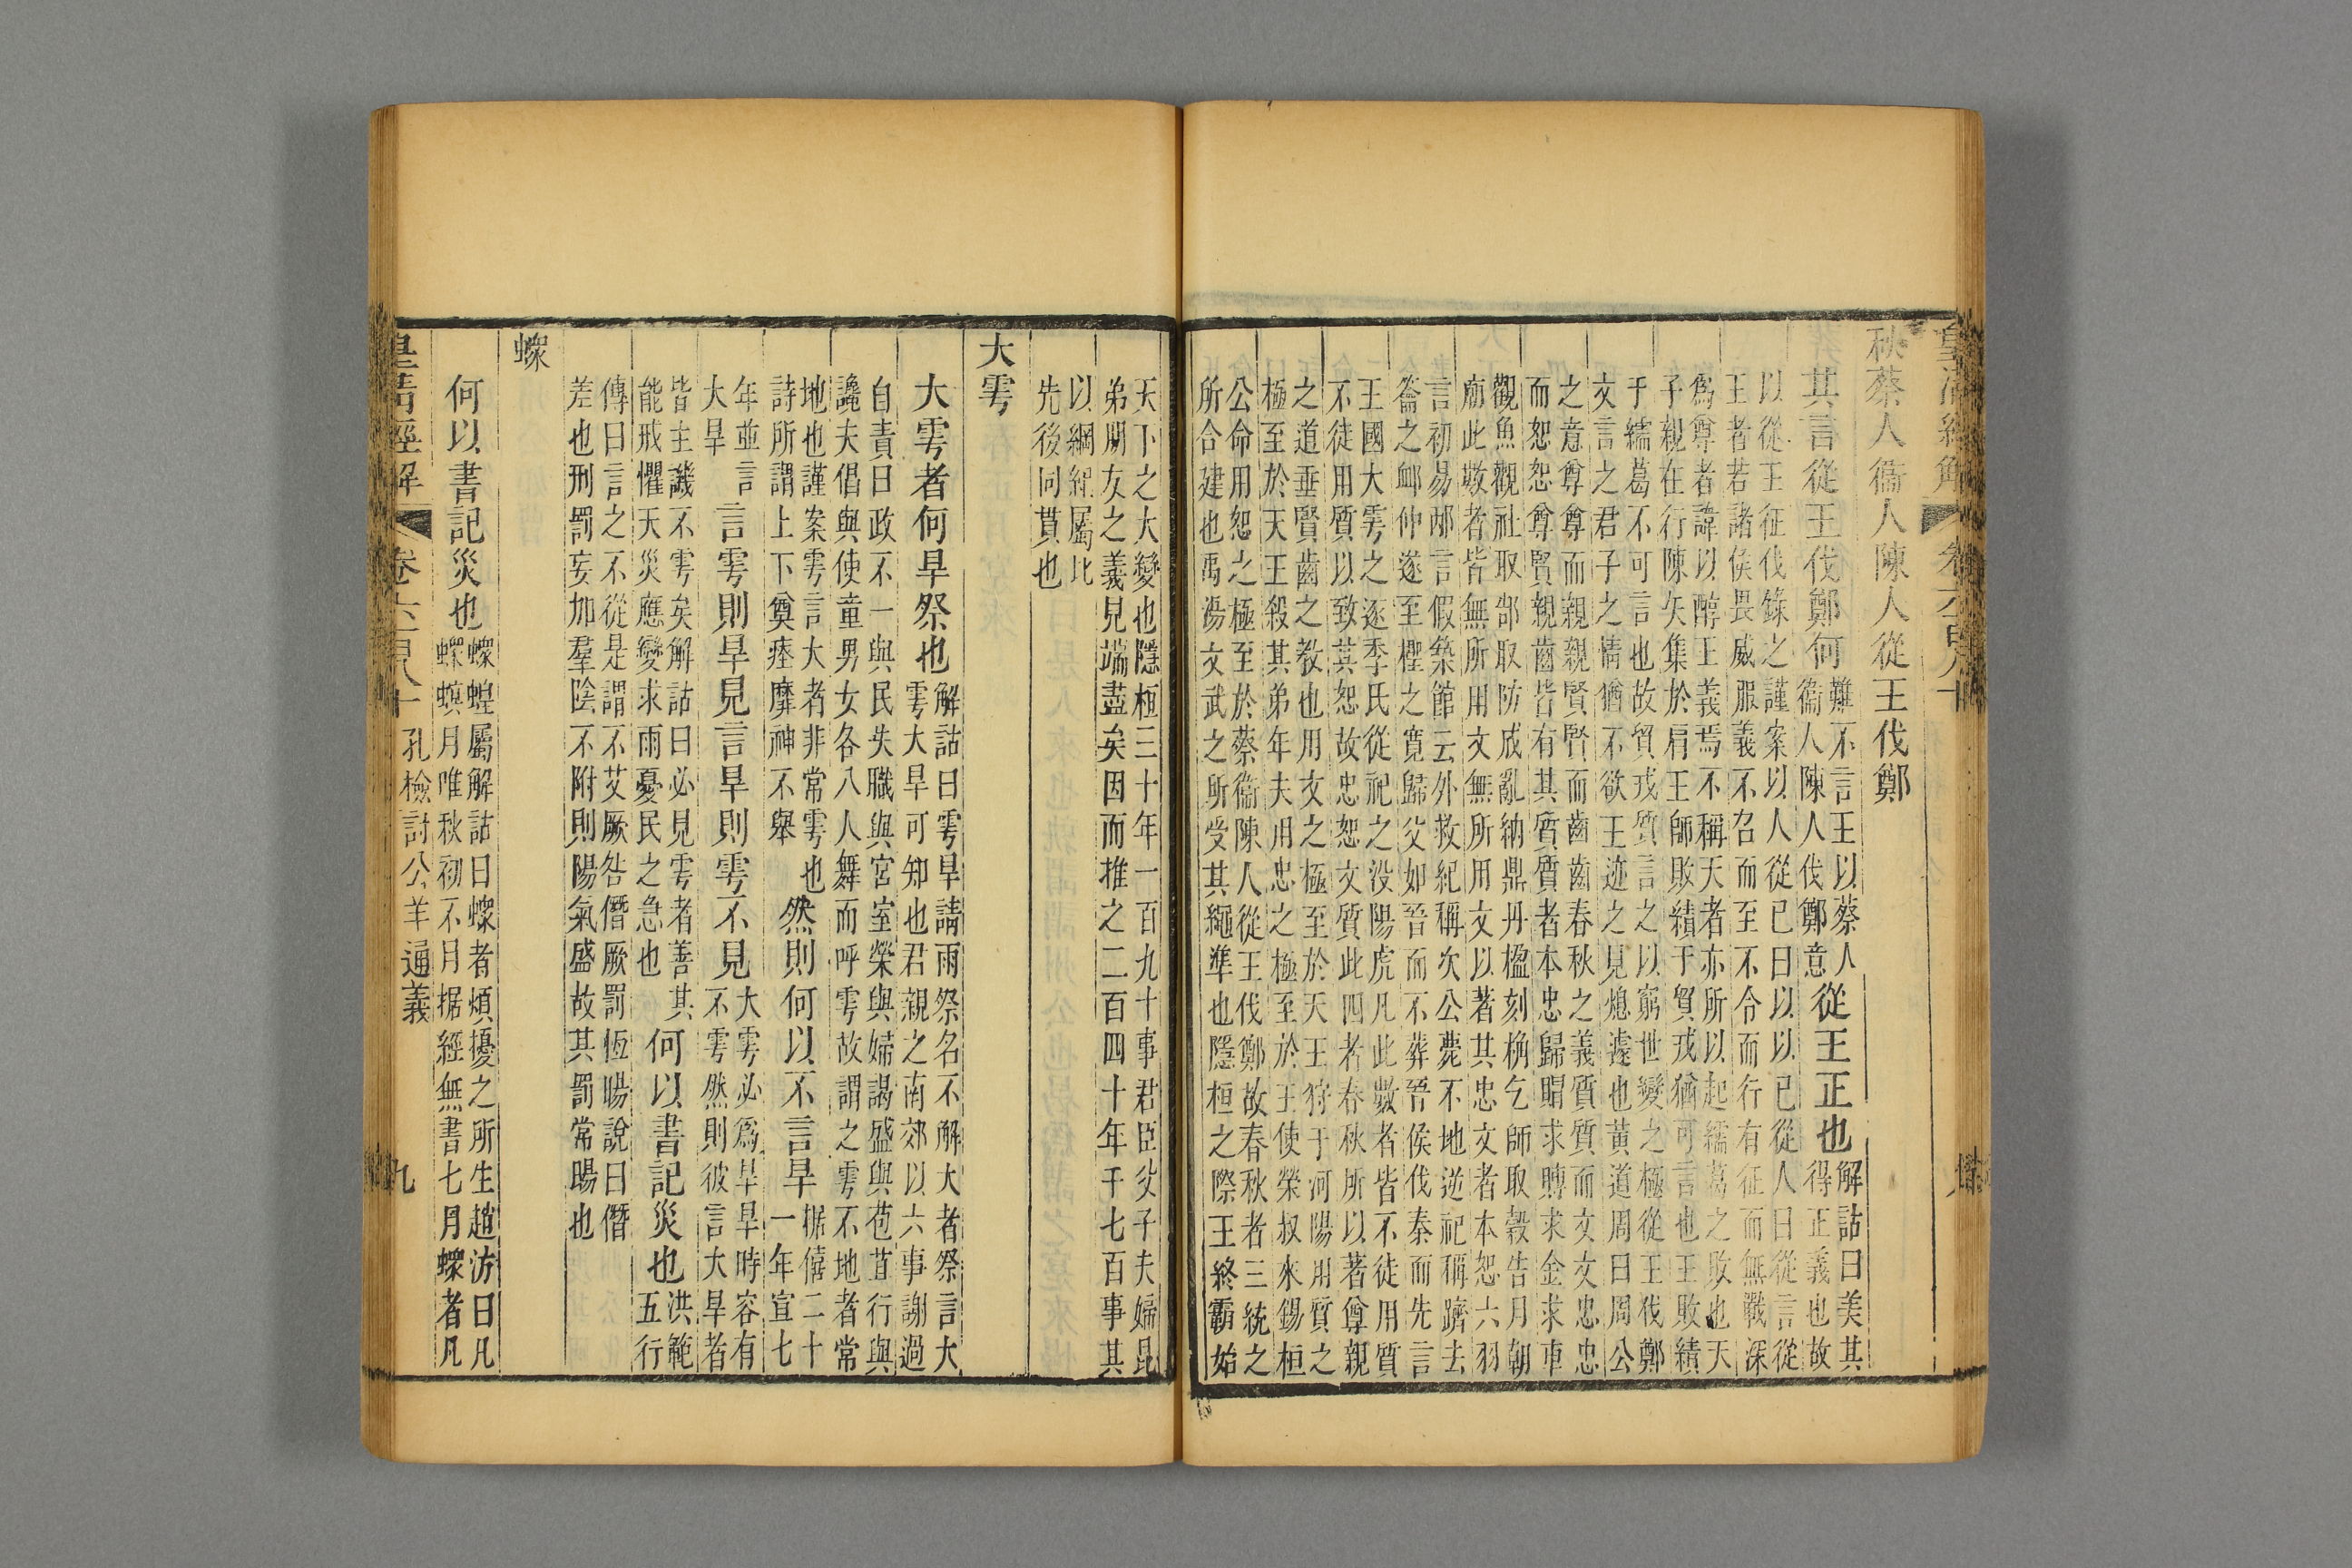 秋蔡人衞人陳人從王伐鄭
其言從王伐鄭何
難不言王以蔡人
衞人陳人伐鄭意
從王正也
解詁曰美其
得正義也故
以從王征伐錄之謹案以人從已曰以以已從人曰從言從
王者若諸侯畏威服義不召而至不令而行有征而無戰深
爲尊者諱以醇王義焉不稱天者亦所以起繻葛之敗也天
子親在行陳矢集於肩王師敗績于貿戎猶可言也王敗績
于繻葛不可言也故貿戎質言之以窮世變之極從王伐鄭
文言之君子之情猶不欲王迹之見熄遽也黃道周曰周公
之意尊尊而親親賢賢而齒齒春秋之義質質而文文忠忠
而恕恕尊賢親齒皆有其質質者本忠歸賵求賻求金求車
觀魚觀社取郜取防成亂納鼎丹楹刻桷乞師取穀告月朝
廟此數者皆無所用文無所用文以著其忠文者本恕六羽
言初易邴言假築館云外救紀稱次公薨不地逆祀稱躋去
奔之邮仲遂至檉之寛歸父如晉而不葬晉侯伐秦而先言
王國大雩之逐季氏從祀之没陽虎凡此數者皆不徒用質
不徒用質以致其恕故忠恕文質此四者春秋所以著尊親
之道垂賢齒之教也用文之極至於天王狩于河陽用質之
極至於天王殺其弟年夫用忠之極至於王使榮叔來錫桓
公命用恕之極至於蔡衞陳人從王伐鄭故春秋者三統之
所合建也禹湯文武之所受其繩準也隱桓之際王終霸始
天下之大變也隱桓三十年一百九十事君臣父子夫婦昆
弟朋友之義見端盡矣因而推之二百四十年千七百事其
以綱紀屬比
先後同貫也
大雩
大雩者何旱祭也
解詁曰雩旱請雨祭名不解大者祭言大
雩大旱可知也君親之南郊以六事謝過
自責曰政不一與民失職與宮室榮與婦謁盛與苞苴行與
讒夫倡與使童男女各八人舞而呼雩故謂之雩不地者常
地也謹案雩言大者非常雩也
詩所謂上下奠瘞靡神不舉
然則何以不言旱
据僖二十
一年宣七
年並言
大旱
言雩則旱見言旱則雩不見
大雩必爲旱旱時容有
不雩然則彼言大旱者
皆主譏不雩矣解詁曰必見雩者善其
能戒懼天災應變求雨憂民之急也
何以書記災也
洪範
五行
傳曰言之不從是謂不艾厥咎僭厥罰恆暘說曰僭
差也刑罰妄加羣陰不附則陽氣盛故其罰常暘也
螺
何以書記災也
螺蝗屬解詁曰螺者煩擾之所生趙汸曰凡
螺螟月唯秋初不月据經無書七月螺者凡
皇清經解
卷六百八十
孔檢討公羊通義
九